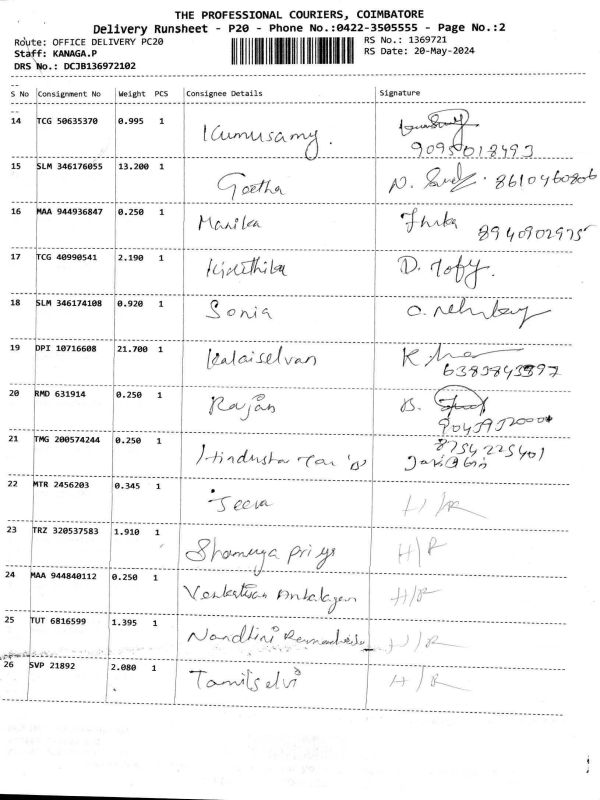 THE PROFESSIONAL COURIERS, COIMBATORE
Delivery Runsheet - P20 - Phone No.:0422-3505555 - Page No.:2
Route: OFFICE DELIVERY PC20 RS No.: 1369721
Staff: KANAGA.P RS Date: 20-May-2024
DRS No.: DCJB136972102
S No Consignment No Weight PCS Consignee Details Signature
14 TCG 50635370 0.995 1 Kumusamy.
9095018493
15 SLM 346176055 13.200 1 Geetha N. 8610460806
16 MAA 944936847 0.250 1 Manika 8940902975
17 TCG 40990541 2.190 1 D.
18 SLM 346174108 0.920 1 Sonia
19 DPI 10716608 21.700 1 Kalaiselvan K
6383843397
20 RMD 631914 0.250 1 Rajan B.
21 TMG 200574244 0.250 1 8754225401
22 MTR 2456203 0.345 1 Jeeva H/R
23 TRZ 320537583 1.910 1 priya H/R
24 MAA 944840112 0.250 1 H/R
25 TUT 6816599 1.395 1 Nandhini H/R
26 SVP 21892 2.080 1 Tamilselvi H/R